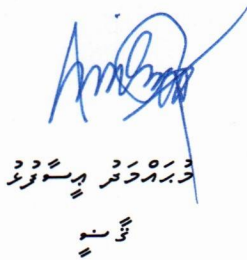 މުޙައްމަދު ޢީސާފުޅު
ޤާޟީ